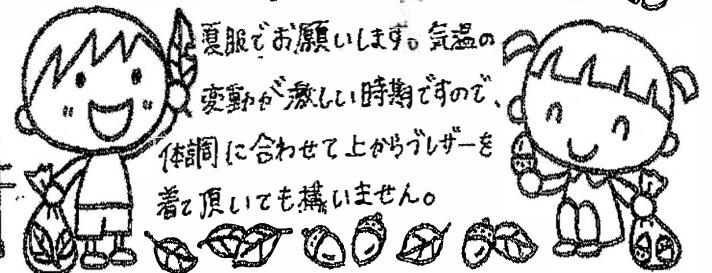 夏服でお願いします。気温の
変動が激しい時期ですので、
体調に合わせて上からブレザーを
着て頂いても構いません。